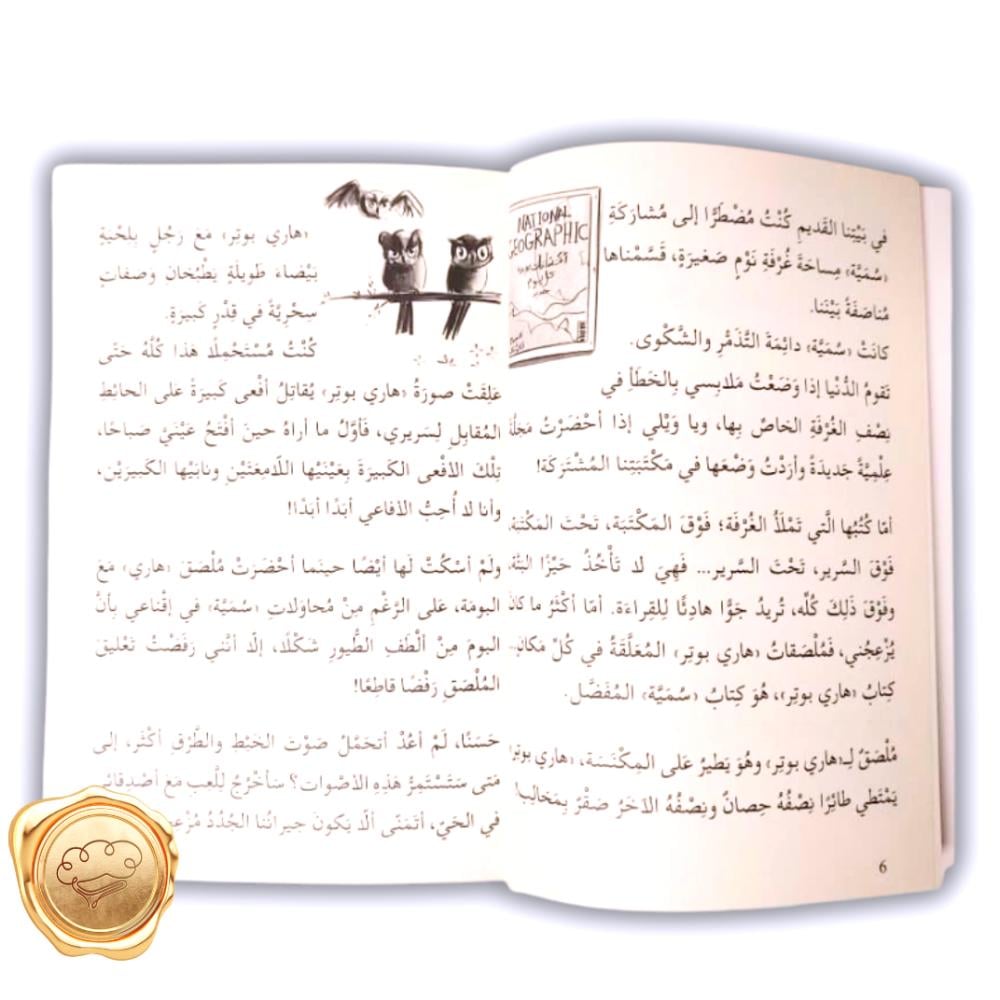 في بَيْتِنا القَديمِ كُنْتُ مُضْطَرًّا إلى مُشارَكَةِ
«سُمَيَّة» مِساحَةَ غُرْفَةِ نَوْمٍ صَغيرَةٍ، قَسَّمْناها
مُناصَفَةً بَيْنَنا.
كانَتْ «سُمَيَّة» دائِمَةَ التَّذَمُّرِ والشَّكْوى.
تَقومُ الدُّنْيا إذا وَضَعْتُ مَلابِسي بِالخَطَأِ في
نِصْفِ الغُرْفَةِ الخاصِّ بِها، ويا وَيْلي إذا أحْضَرْتُ مَجَلَّةً
عِلْمِيَّةً جَديدَةً وأرَدْتُ وَضْعَها في مَكْتَبَتِنا المُشْتَرَكَة!
أمّا كُتُبُها الَّتي تَمْلَأُ الغُرْفَة؛ فَوْقَ المَكْتَبَة، تَحْتَ المَكْتَبَة،
فَوْقَ السَّرير، تَحْتَ السَّرير... فَهِيَ لا تَأْخُذُ حَيِّزًا البَتَّة،
وفَوْقَ ذَلِكَ كُلِّه، تُريدُ جَوًّا هادِئًا لِلقِراءَة. أمّا أكْثَرُ ما كانَ
يُزْعِجُني، فَمُلْصَقاتُ «هاري بوتِر» المُعَلَّقَةُ في كُلِّ مَكانٍ...
كِتابُ «هاري بوتِر»، هُوَ كِتابُ «سُمَيَّة» المُفَضَّل.
مُلْصَقٌ لِـ«هاري بوتِر» وهُوَ يَطيرُ عَلى المِكْنَسَة، «هاري بوتِر»
يَمْتَطي طائِرًا نِصْفُهُ حِصانٌ ونِصْفُهُ الآخَرُ صَقْرٌ بِمَخالِب!
NATIONAL
GEOGRAPHIC
6
«هاري بوتِر» مَعَ رَجُلٍ بِلِحْيَةٍ
بَيْضاءَ طَويلَةٍ يَطْبُخانِ وَصَفاتٍ
سِحْرِيَّةً في قِدْرٍ كَبيرَةٍ.
كُنْتُ مُسْتَحْمِلًا هَذا كُلَّهُ حَتّى
عَلِقَتْ صورَةُ «هاري بوتِر» يُقاتِلُ أفْعى كَبيرَةً عَلى الحائِطِ
المُقابِلِ لِسَريري، فَأوَّلُ ما أراهُ حينَ أفْتَحُ عَيْنَيَّ صَباحًا،
تِلْكَ الأفْعى الكَبيرَةَ بِعَيْنَيْها اللّامِعَتَيْنِ ونابَيْها الكَبيرَيْن،
وأنا لا أُحِبُّ الأفاعي أبَدًا أبَدًا!
ولَمْ أسْكُتْ لَها أيْضًا حينَما أحْضَرَتْ مُلْصَقَ «هاري» مَعَ
البومَة، عَلى الرَّغْمِ مِنْ مُحاوَلاتِ «سُمَيَّة» في إقْناعي بِأنَّ
البومَ مِنْ ألْطَفِ الطُّيورِ شَكْلًا، إلّا أنَّني رَفَضْتُ تَعْليقَ
المُلْصَقِ رَفْضًا قاطِعًا!
حَسَنًا، لَمْ أعُدْ أتَحَمَّلُ صَوْتَ الخَبْطِ والطَّرْقِ أكْثَر، إلى
مَتى سَتَسْتَمِرُّ هَذِهِ الأصْوات؟ سَأخْرُجُ لِلَّعِبِ مَعَ أصْدِقائي
في الحَيِّ، أتَمَنّى ألّا يَكونَ جيرانُنا الجُدُدُ